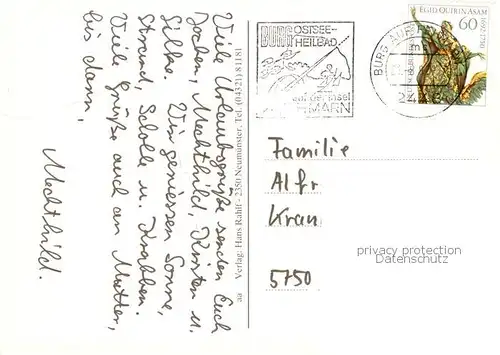 Viele Urlaubsgrüße senden Euch
Jochen, Mechthild, Kirsten u.
Silke. Wir genießen Sonne,
Strand, Scholle u. Krabben.
Viele Grüße auch an Mutter,
bis dann,
Mechthild.
aa Verlag: Hans Rahlf - 2350 Neumünster, Tel. (04321) 81181
BURG OSTSEE-
HEILBAD
auf der Insel
BURG AUF
EGID QUIRIN ASAM
1692-1750
60
Familie
Alfr
Kran
5750
privacy protection
Datenschutz